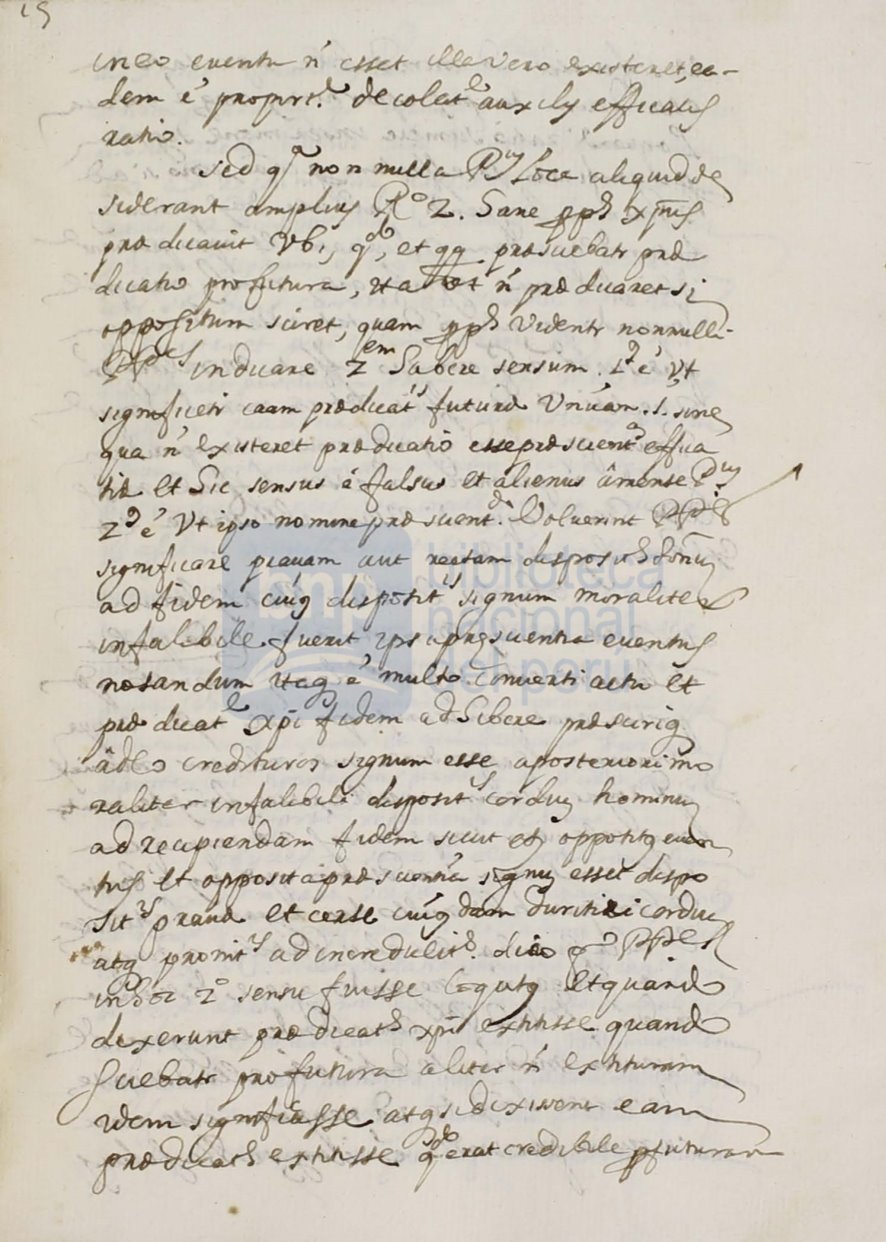 15
in eo eventu ñ esset illa vero existeret, ea-
dem é proprt. de colat auxilij efficatis
ratio.
sed q non nulla loca aliquid de
siderant amplius Ro 2. Sane xpus
prædicavit Ubi, qdo, et præsciebatr præ
dicatio profutura, ita ut ñ prædicaret si
oppositum sciret, quam videntr nonnulli
PPes indicare 2em habere sensum. é ut
significetr caam prædicat futuræ Unicam .s. sine
qua ñ existeret prædicatio esse præscient effica
tiæ et sic sensus é falsus et alienus â mente
é Ut ipso nomine præscient. Voluerint PPes
significare pravam aut rectam disposit
ad fidem cuiq disposit signum moraliter
infalibile fuerit ipsa præscientia eventus
notandum itaq é, multo converti actu et
prædicat xpi fidem adhibere præsciriq
âdeo credituros signum esse aposteriori mo
raliter infalibile disposit cordis hominis
ad recipiendam fidem sicut et oppositq even
tus et opposita præscientia signum esset dispo
sit pravæ et certe cuiusdam duritiei cordis
atq promt ad incredulit. dico PPes
in hoc 2o sensu fuisse loqutq et quando
dixerunt prædicat xpi extitisse quando
sciebatr profutura aliter ñ extituram
idem significasse atq si dixissent eam
prædicat extitisse erat credibile profuturam
biblioteca
nacional
del perú
bnp